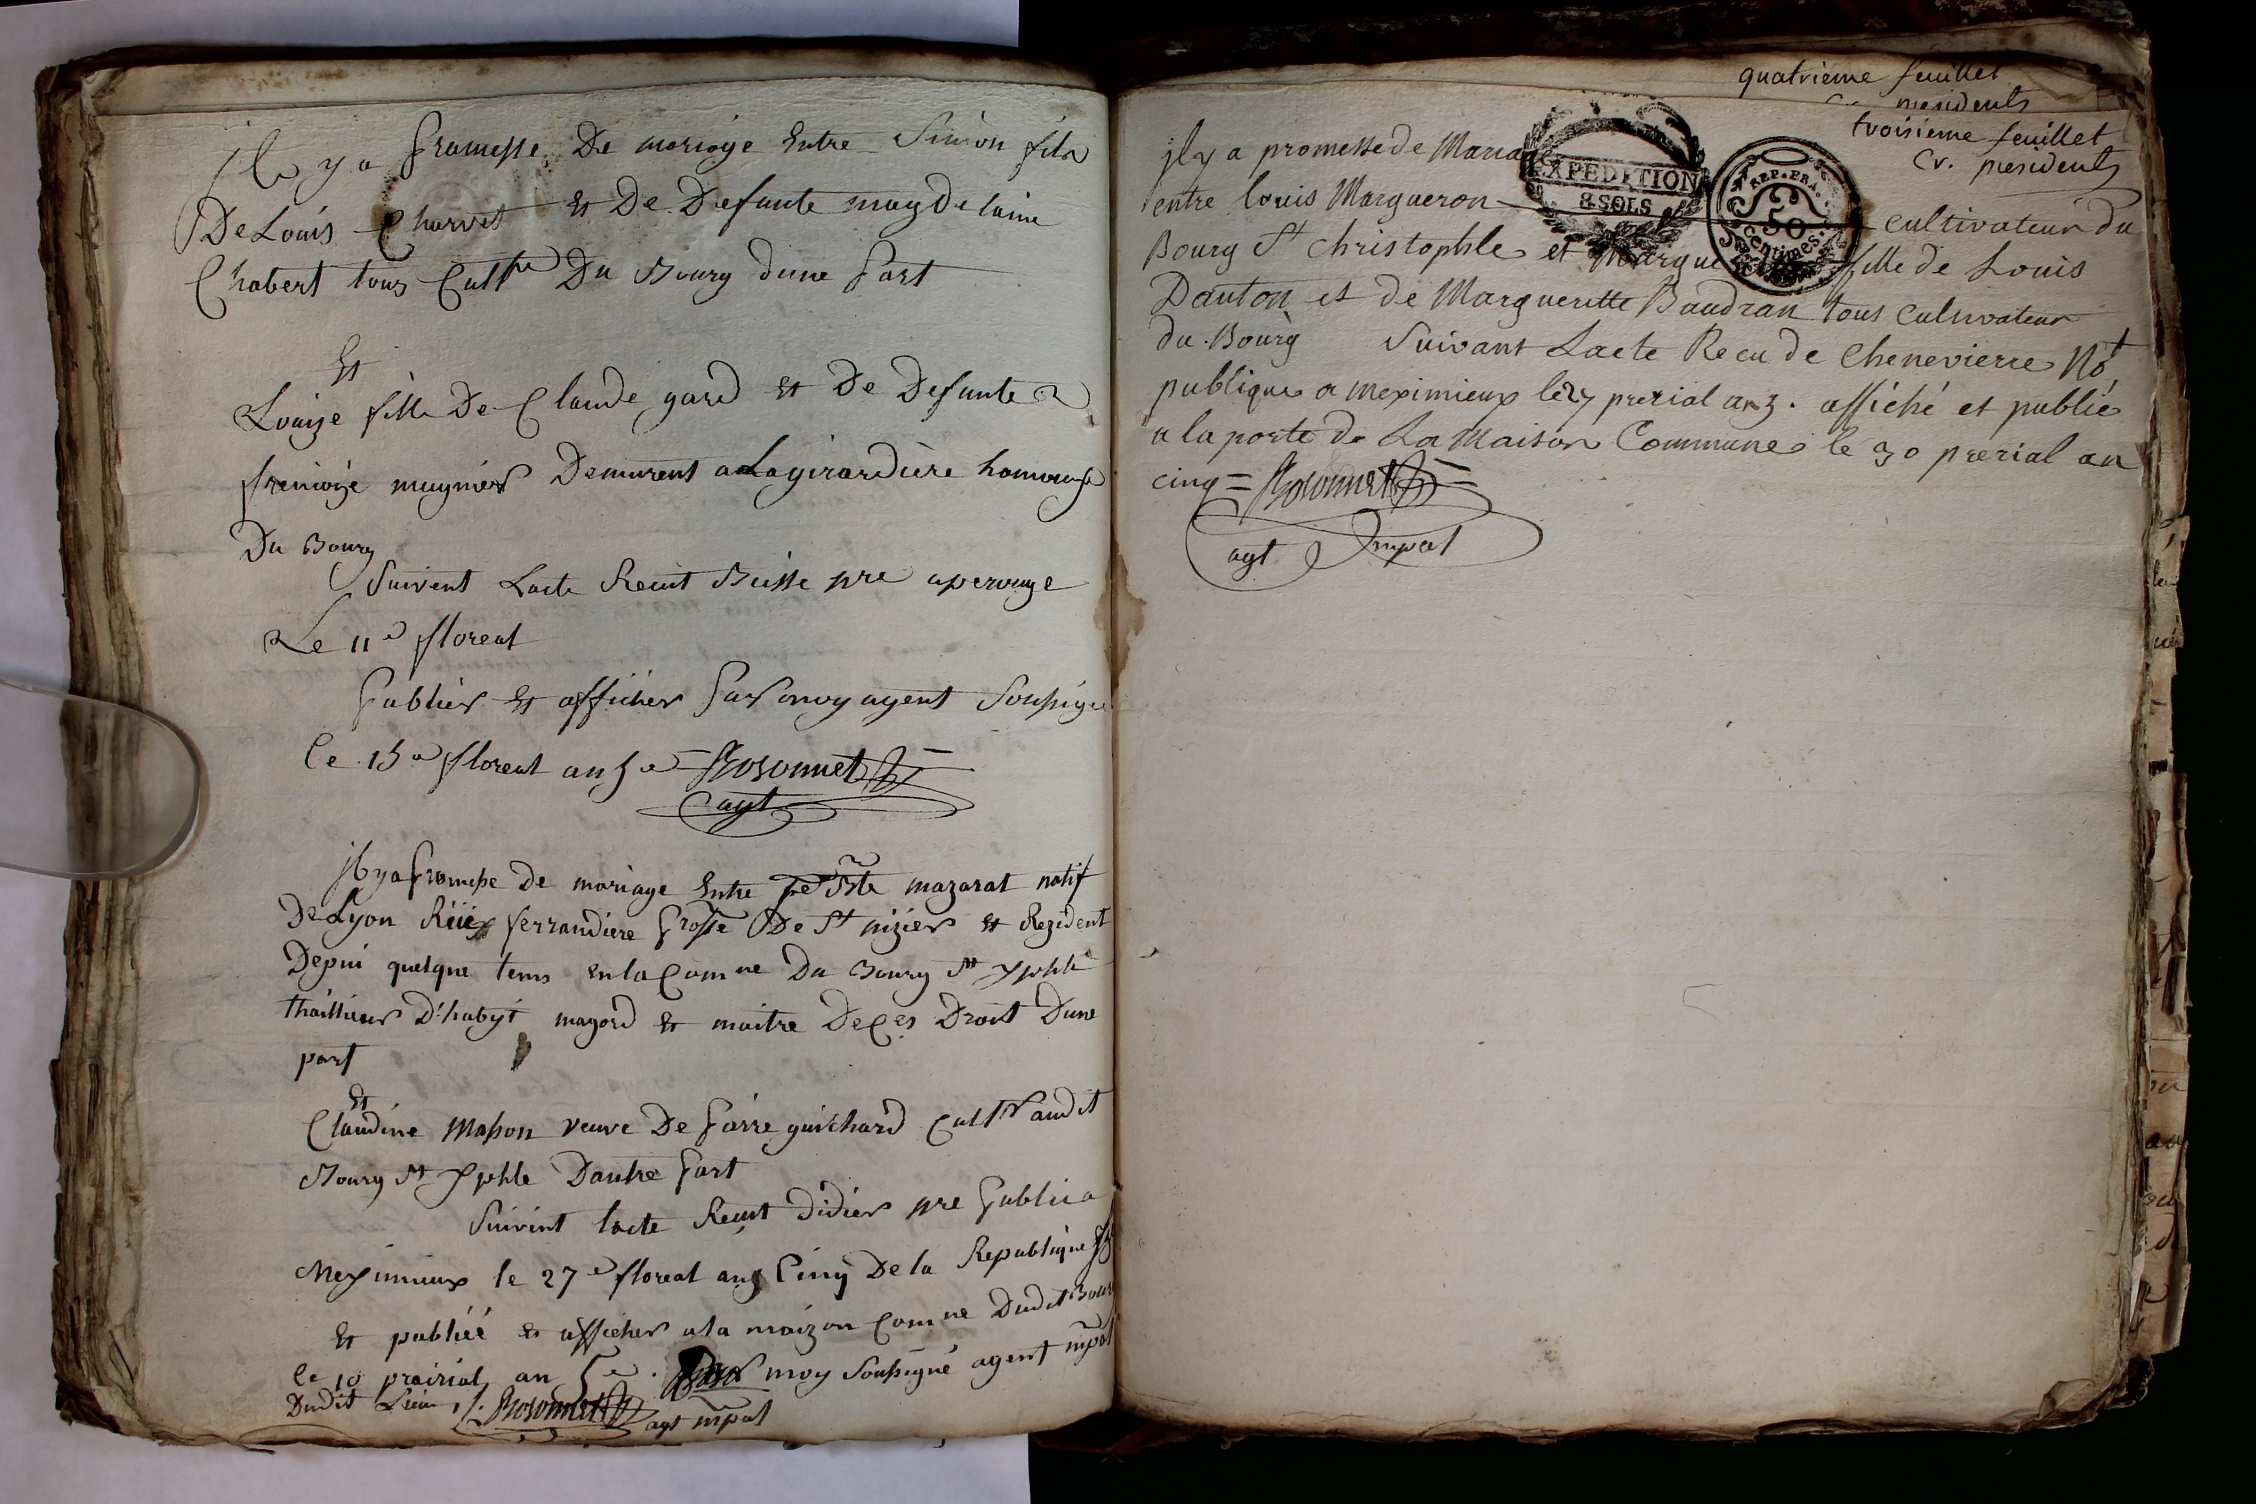 il y a promesse De mariage Entre Simon fils
De Louis Charvet Et De Defunte magdelaine
Chabert tous Cultre Du Bourg dune part
Et
Louize fille De Claude gard Et De Defunte
mugnier Demurent a Lagirardière
Du Bourg
Suivent Lacte Recut Bisse pre a perouge
Le 11e floreal
Publier Et afficher par moy agent Soussigné
le 15e floreal an 5e Bosonnet
agt
il y a promesse De mariage Entre Bte mazarat natif
De Lyon Rüe ferrandiere Prosse De St nizier Et Rezident
Depui quelque tems en la Comne Du Bourg St Xphle
thaillieur D'habyt mayord Et maitre De Ces Droit Dune
part
Et
Claudine Masson veuve De Pierre guichard Cultr audit
Bourg St Xphle Dautre part
Suivint lacte Recut didier pre Public a
Meximieux le 27e floreal an Cinq De la Republique
Et publiéé Et afficher a la maizon Comne Dudit Bourg
le 10 prairial an 5e. par moy Soussigné agent mpal
Dudit Lieu, Bosonnet agt mpal
quatrieme feuillet
presidents
troisieme feuillet
Cr. presidents
EXPEDITION
8 SOLS
REP. FRA.
50
centimes.
il y a promesse de Mariage
entre louis Margueron cultivateur du
Bourg St christophle et fille de Louis
Danton et de Margueritte Baudran tous cultivateur
du Bourg Suivant Lacte Recu de chenevierre Not
publique a meximieux le 27 prerial an 3. affiché et publié
a la porte de La Maison Commune le 30 prerial an
cinq = Bosonnet =
agt mpal